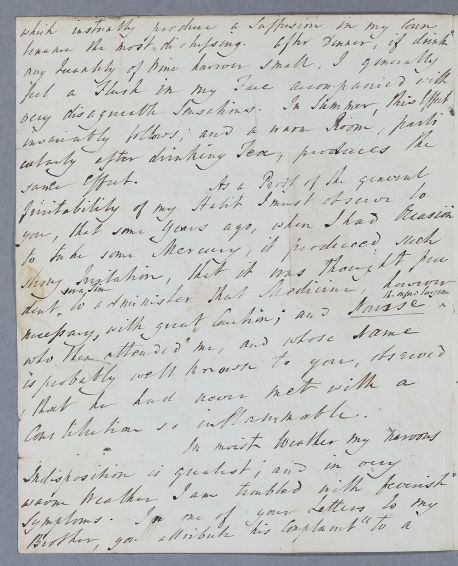 which instantly produce a Suffusion in my Coun
tenance the most distressing. After Dinner, if I drink
any Quantity of Wine however small, I generally
feel a Flush in my Face accompanied with
very disagreeable Sensations. In Summer, this Effect
invariably follows; and a warm Room, parti
cularly after drinking Tea, produces the
same Effect. As a Proof of the general
Irritability of my Habit I must observe to
you, that some Years ago, when I had Occasion
to take some Mercury, it produced such
strong Irritation, that it was thought pru
dent, for a time to administer that Medicine however
necessary, with great Caution; and Nourse
who then attended me, and whose Name
is probably well known to you, observed
that he had never met with a
Constitution so inflammable.
In moist Weather my nervous
Indisposition is greatest; and in very
warm Weather I am troubled with feverish
Symptoms. In one of your Letters to my
Brother, you attribute his Complaint "to a